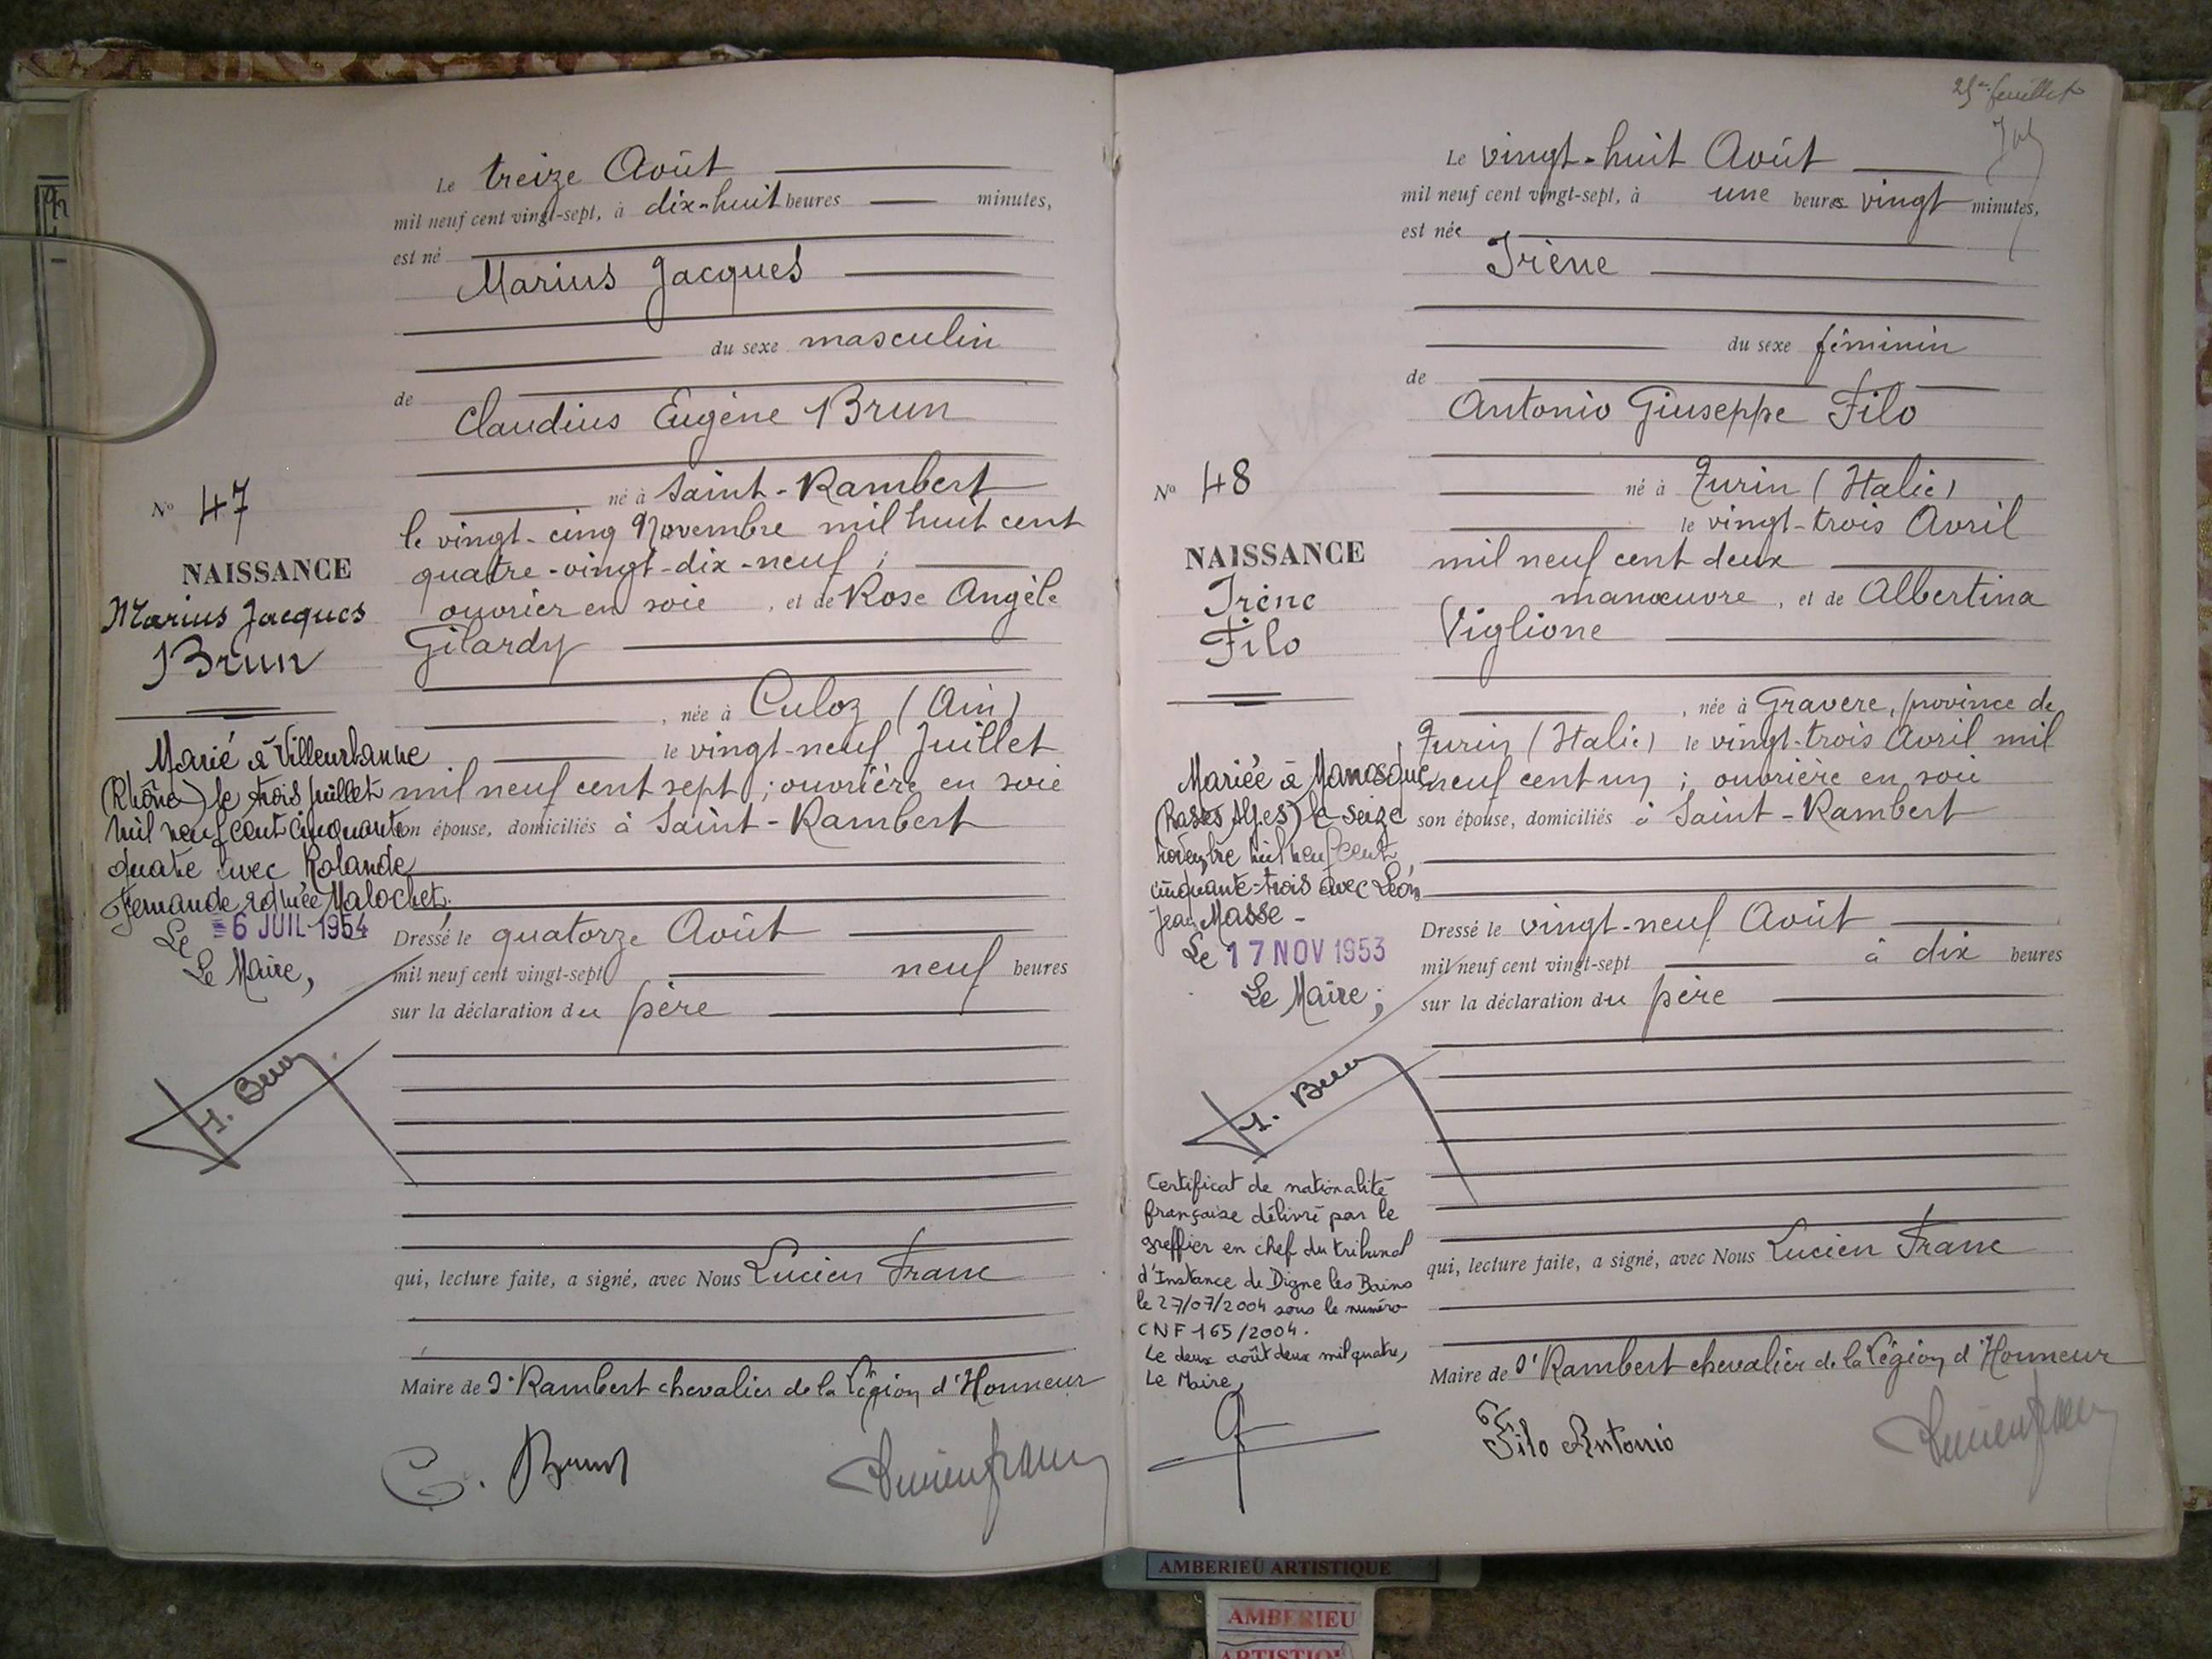 Le treize Août
mil neuf cent vingt-sept, à dix-huit heures minutes,
est né
Marius Jacques
du sexe masculin
de
Claudius Eugène Brun
né à Saint-Rambert
le vingt-cinq Novembre mil huit cent
quatre-vingt-dix-neuf ;
ouvrier en soie , et de Rose Angèle
Gilardy
, née à Culoz (Ain)
le vingt-neuf Juillet
mil neuf cent sept ; ouvrière en soie
son épouse, domiciliés à Saint-Rambert
Dressé le quatorze Août
mil neuf cent vingt-sept neuf heures
sur la déclaration du père
qui, lecture faite, a signé, avec Nous Lucien Franc
Maire de St Rambert chevalier de la Légion d'Honneur
C. Brun
Lucien Franc
No 47
NAISSANCE
Marius Jacques
Brun
Marié à Villeurbanne
(Rhône) le trois juillet
mil neuf cent cinquante
quatre avec Rolande
Fernande Malochet.
Le 6 JUIL 1954
Le Maire,
25e feuillet
Le vingt-huit Août
mil neuf cent vingt-sept, à une heures vingt minutes,
est née
Irène
du sexe féminin
de
Antonio Giuseppe Filo
né à Turin (Italie)
le vingt-trois Avril
mil neuf cent deux
manœuvre , et de Albertina
Viglione
, née à Gravere, province de
Turin (Italie) le vingt-trois Avril mil
neuf cent un ; ouvrière en soie
son épouse, domiciliés à Saint-Rambert
Dressé le vingt-neuf Août
mil neuf cent vingt-sept à dix heures
sur la déclaration du père
qui, lecture faite, a signé, avec Nous Lucien Franc
Maire de St Rambert chevalier de la Légion d'Honneur
Filo Antonio
Lucien Franc
No 48
NAISSANCE
Irène
Filo
Mariée à Manosque
(Basses Alpes) le seize
novembre mil neuf cent
cinquante-trois avec Léon
Jean Masse -
Le 17 NOV 1953
Le Maire ;
Certificat de nationalité
française délivré par le
greffier en chef du tribunal
d'Instance de Digne les Bains
le 27/07/2004 sous le numéro
CNF 165/2004.
Le deux août deux mil quatre,
Le Maire,
AMBERIEU ARTISTIQUE
AMBERIEU
ARTISTIQUE